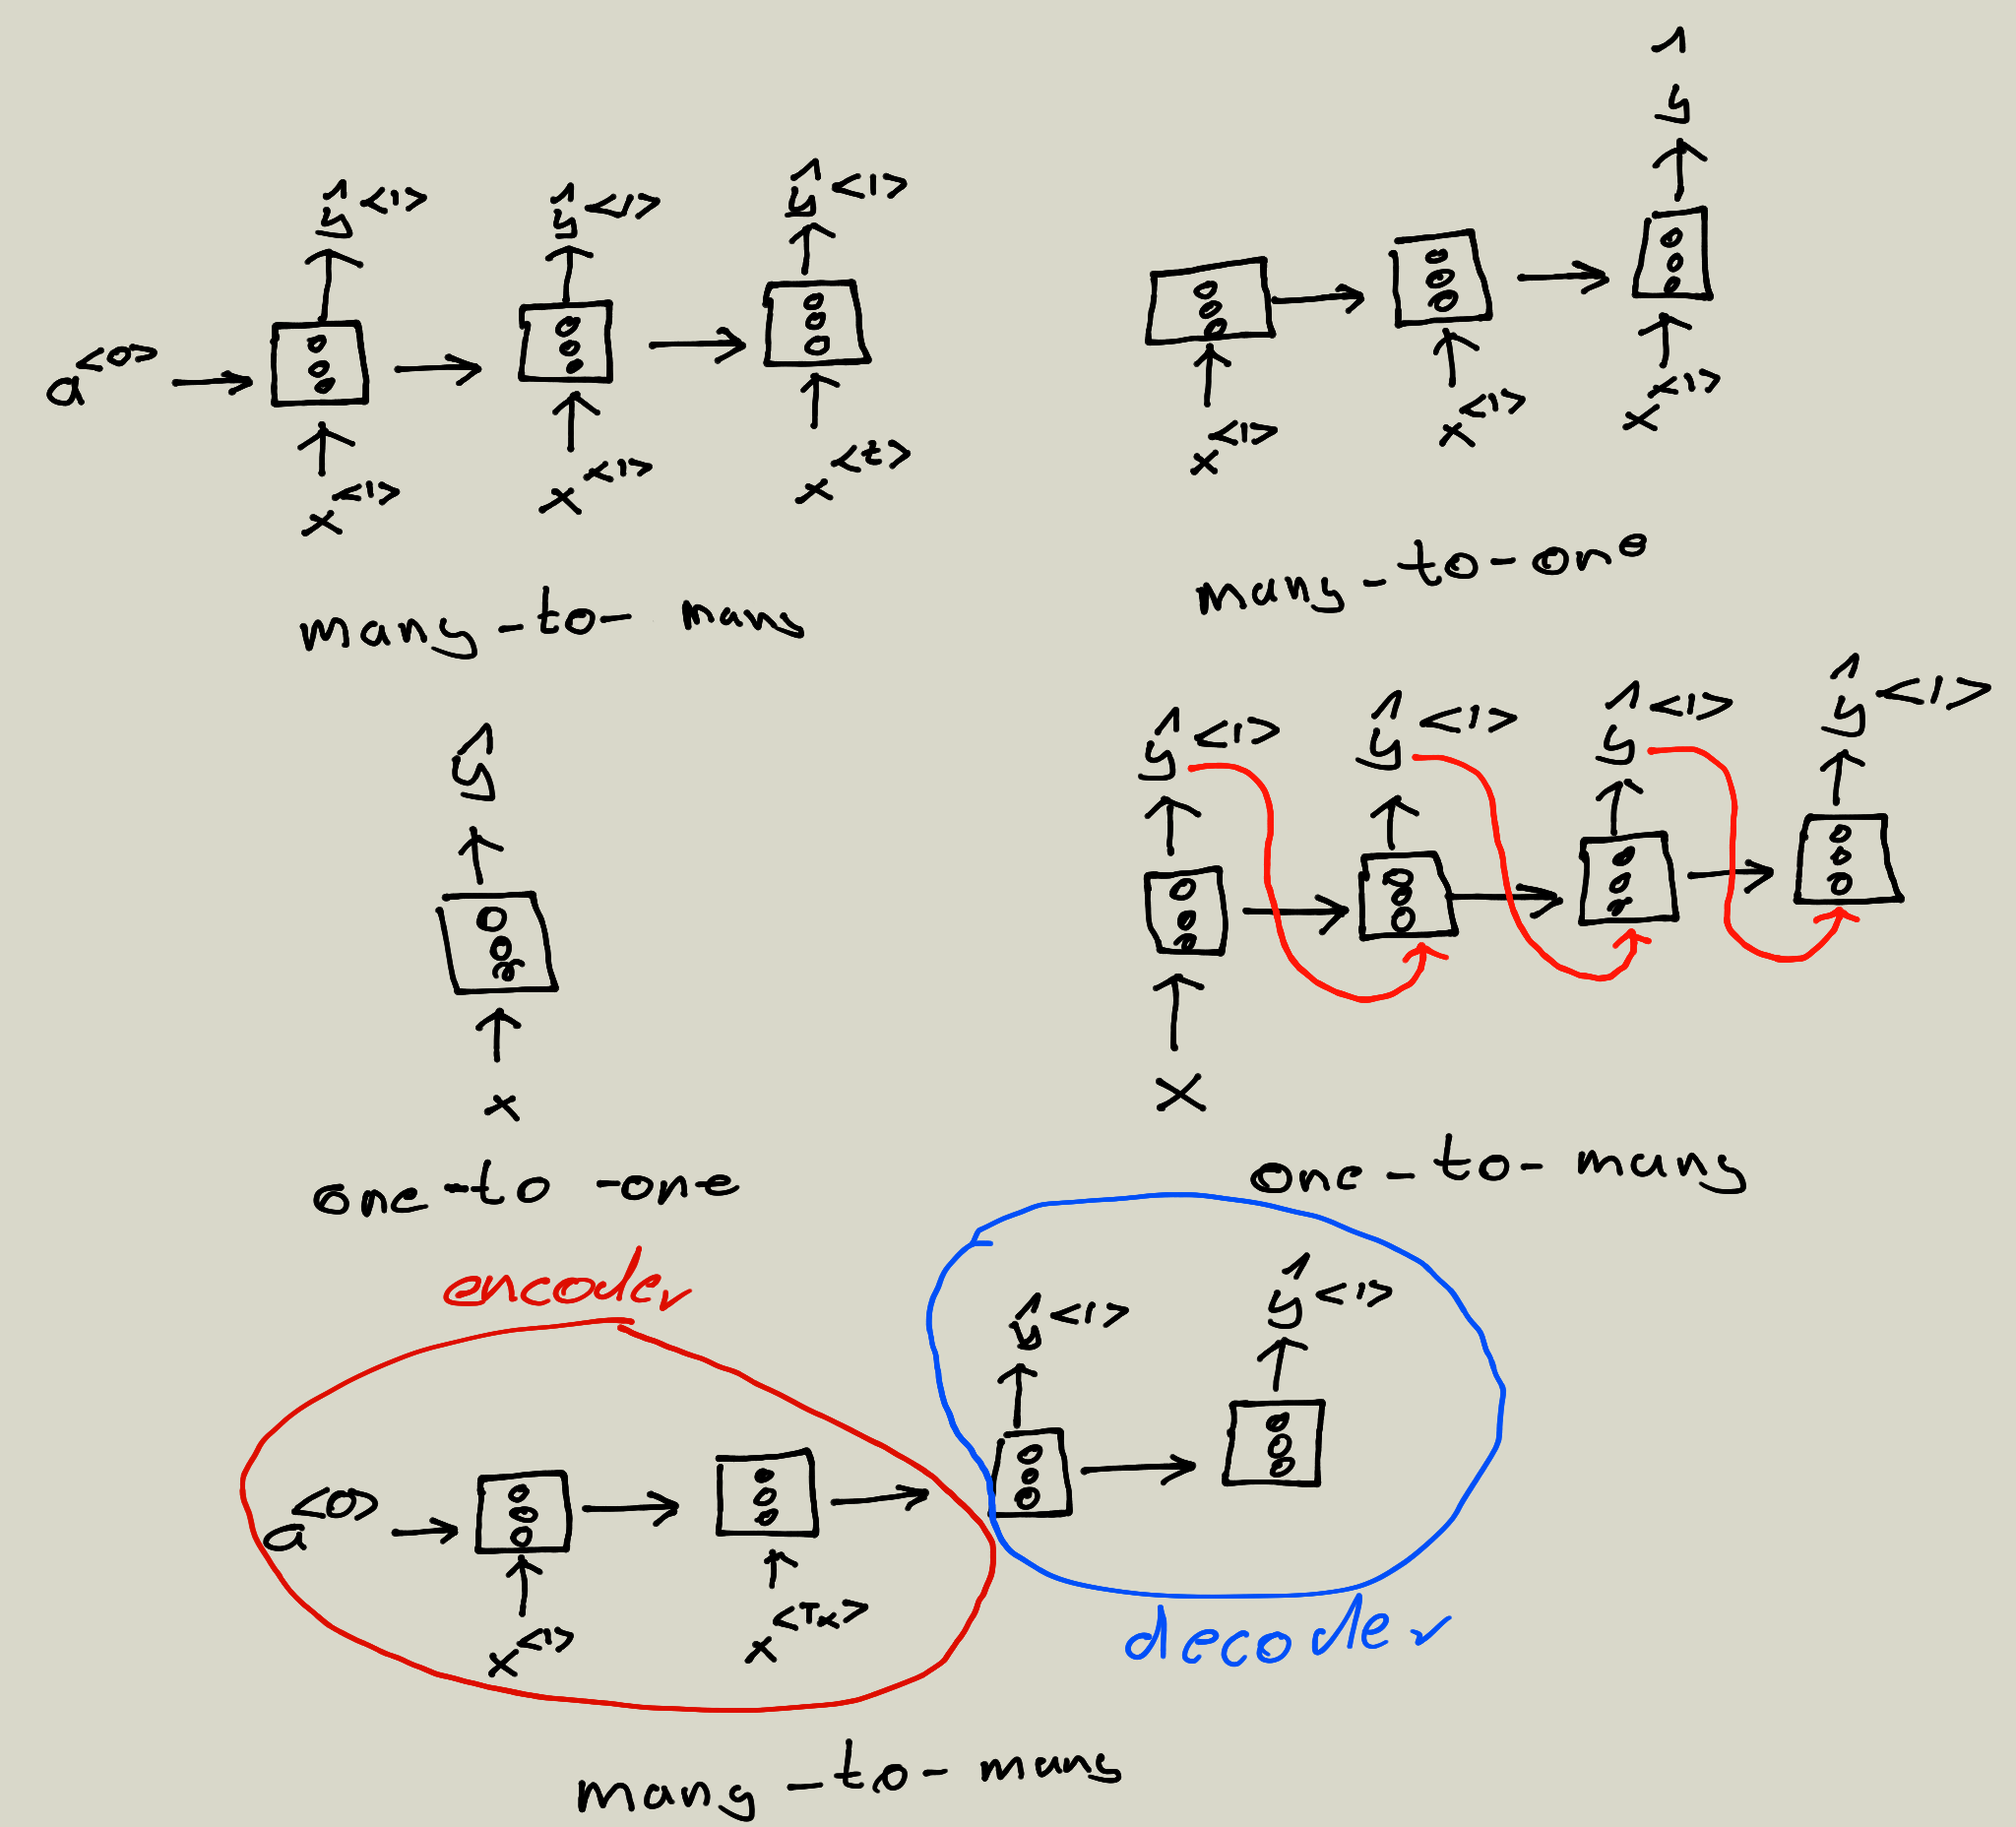 ŷ<1> ŷ<1> ŷ<1>
a<0>
x<1> x<1> x<t>
many-to-many
ŷ
x<1> x<1> x<1>
many-to-one
ŷ
x
one-to-one
ŷ<1> ŷ<1> ŷ<1> ŷ<1>
x
one-to-many
encoder
a<0>
x<1> x<Tx>
ŷ<1> ŷ<1>
decoder
many-to-many